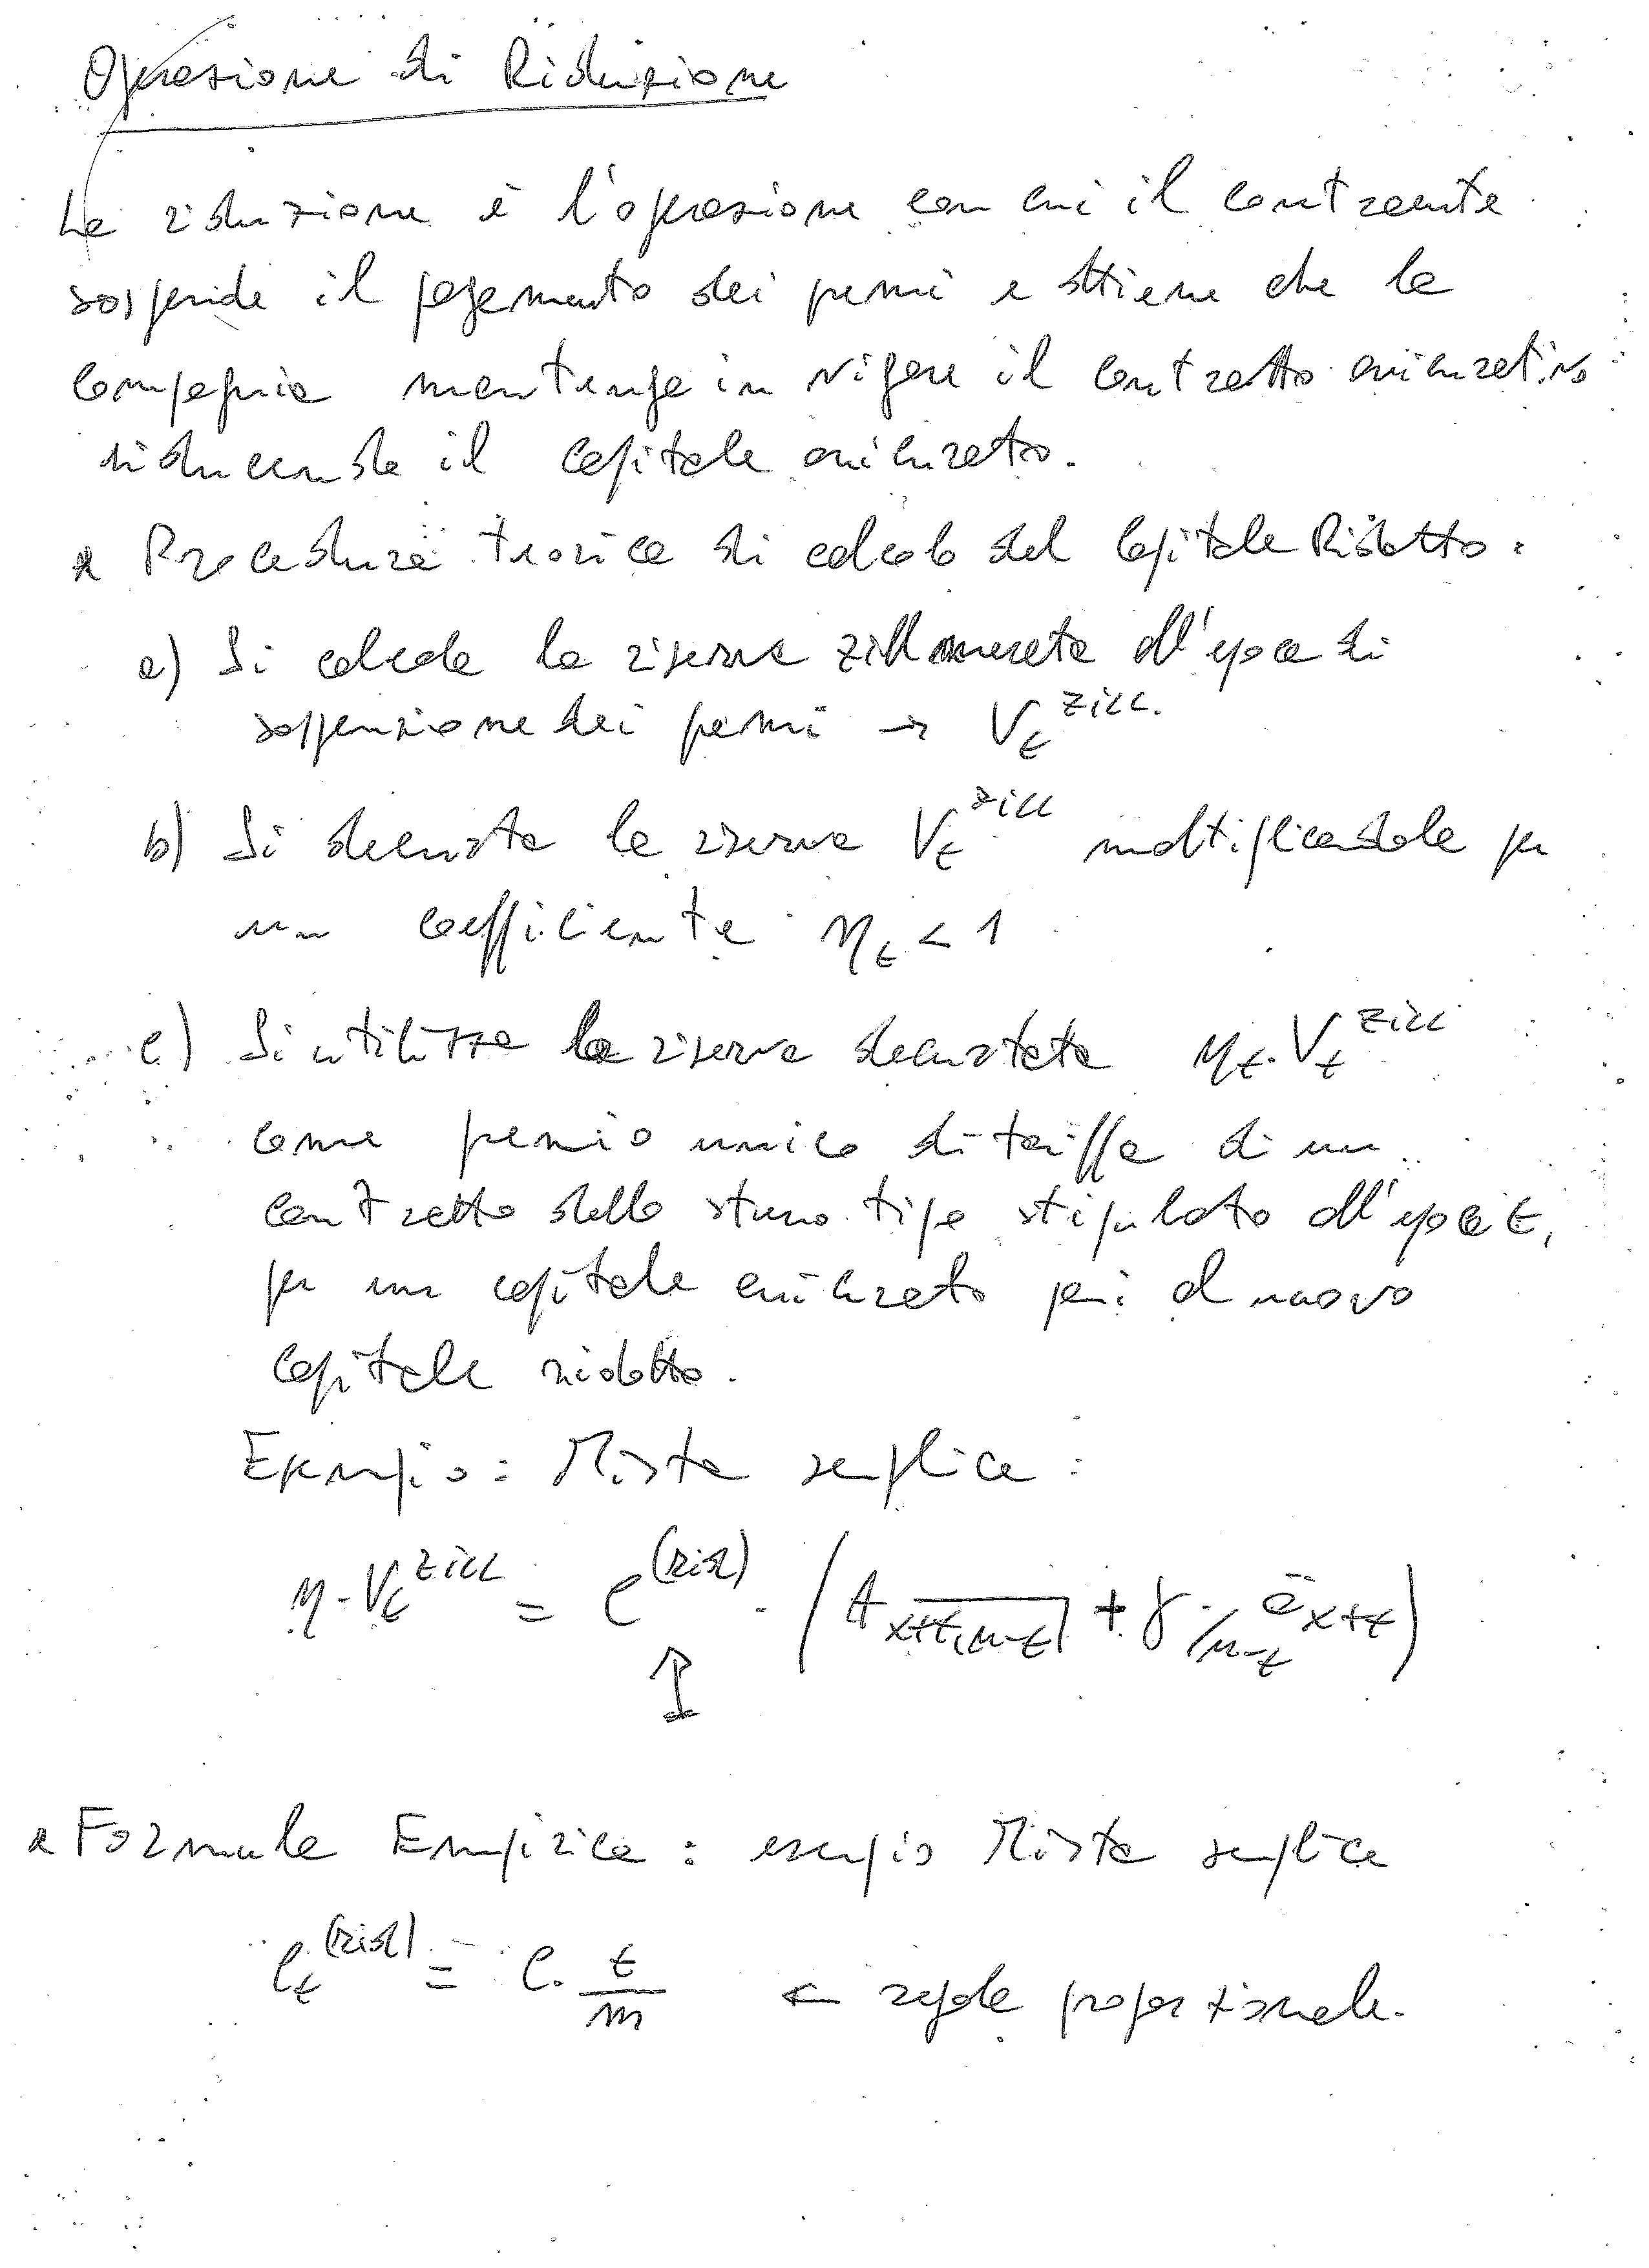 Operazione di Riduzione
La riduzione è l'operazione con cui il contraente
sospende il pagamento dei premi e ottiene che la
compagnia mantenga in vigore il contratto assicurativo
riducendo il capitale assicurato.
Procedura teorica di calcolo del Capitale Ridotto:
a) Si calcola la riserva zillmerata all'epoca di
sospensione dei premi → V_t^ZILL.
b) Si decurta la riserva V_t^ZILL moltiplicandola per
un coefficiente η_t < 1
c) Si utilizza la riserva decurtata η_t · V_t^ZILL
come premio unico di tariffa di un
contratto dello stesso tipo stipulato all'epoca t,
per un capitale assicurato pari al nuovo
capitale ridotto.
Esempio: Mista semplice:
η · V_t^ZILL = C^(rid) · (A_{x+t, n-t}| + γ · /n-t ä_{x+t})
⇑
Formula Empirica: esempio Mista semplice
C_t^(rid) = C · t/m ← regola proporzionale.